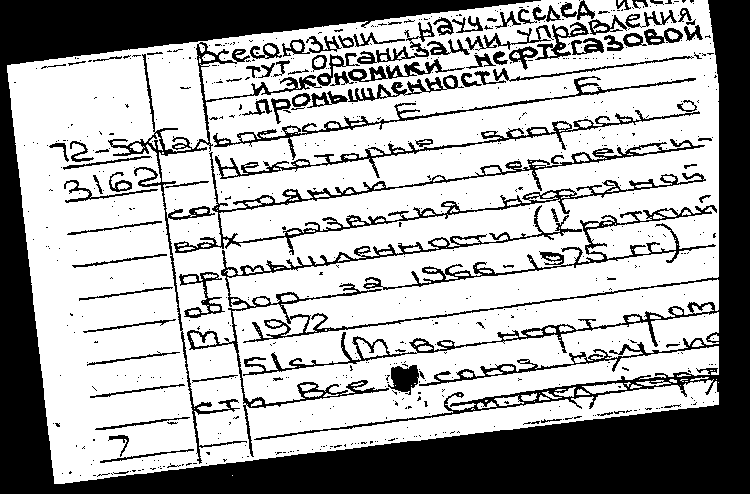 Всесоюзный науч.-исслед. инсти
тут организации, управления
и экономики нефтегазовой
промышленности
Б
72-5а Гальперсон, Е
3162 Некоторые вопросы о
состоянии и перспекти-
вах развития нефтяной
промышленности. (Краткий
обзор за 1966-1975 гг.)
М. 1972
51с. (М-во нефт. пром
сти. Все союз. науч.-ис
См. след. карт
7